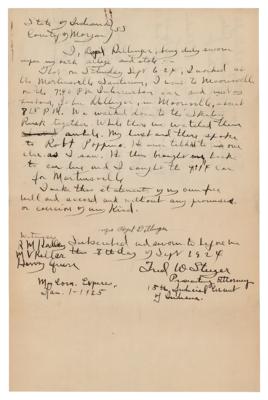 State of Indiana
County of Morgan SS
I, Beryl Dillinger, being duly sworn
upon my oath allege and state:-
That on Saturday Sept 6 24, I worked at
the Martinsville Sanitarium, I went to Mooresville
on the 7:40 P.M. Interurban car and met
husband, John Dillinger, in Mooresville, about
8:15 P.M. We walked down to the Skating
Rink together. While there we watched them
skate. My husband there spoke
to Robt Poppino. He never talked to no one
else as I saw. He then brought me back
to car line and I caught the car
for Martinsville
I make this statement of my own free
will and accord and without any promises
or coercion of any kind.
Mrs Beryl Dillinger
Witness
Subscribed and sworn to before me
this 8th day of Sept 1924
Harry
Fred W Steiger
Prosecuting Attorney
15th Judicial Circuit
of Indiana.
My Com. Expires,
Jan. 1-1925